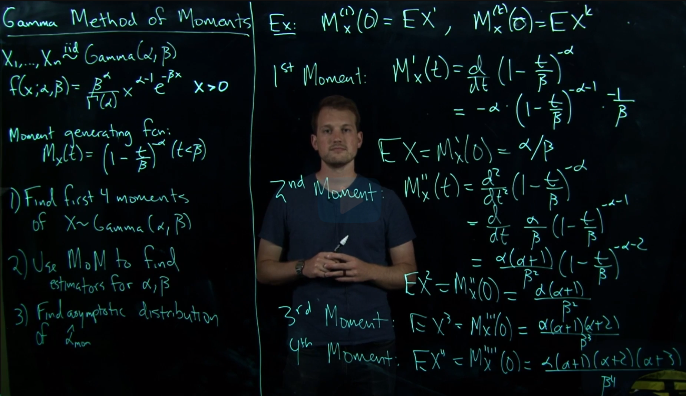 Gamma Method of Moments
X₁,...,Xₙ iid ~ Gamma(α, β)
f(x;α,β) = β^α/Γ(α) x^(α-1) e^(-βx) x>0
Moment generating fcn:
Mₓ(t) = (1 - t/β)^(-α) (t<β)
1) Find first 4 moments
of X~Gamma(α, β)
2) Use MoM to find
estimators for α, β
3) Find asymptotic distribution
of α̂_mom
Ex: Mₓ^(1)(0) = EX¹, Mₓ^(k)(0) = EX^k
1st Moment: Mₓ'(t) = d/dt (1 - t/β)^(-α)
= -α · (1 - t/β)^(-α-1) · -1/β
EX = Mₓ'(0) = α/β
2nd Moment: Mₓ''(t) = d²/dt² (1 - t/β)^(-α)
= d/dt α/β (1 - t/β)^(-α-1)
= α(α+1)/β² (1 - t/β)^(-α-2)
EX² = Mₓ''(0) = α(α+1)/β²
3rd Moment: EX³ = Mₓ'''(0) = α(α+1)(α+2)/β³
4th Moment: EX⁴ = Mₓ''''(0) = α(α+1)(α+2)(α+3)/β⁴